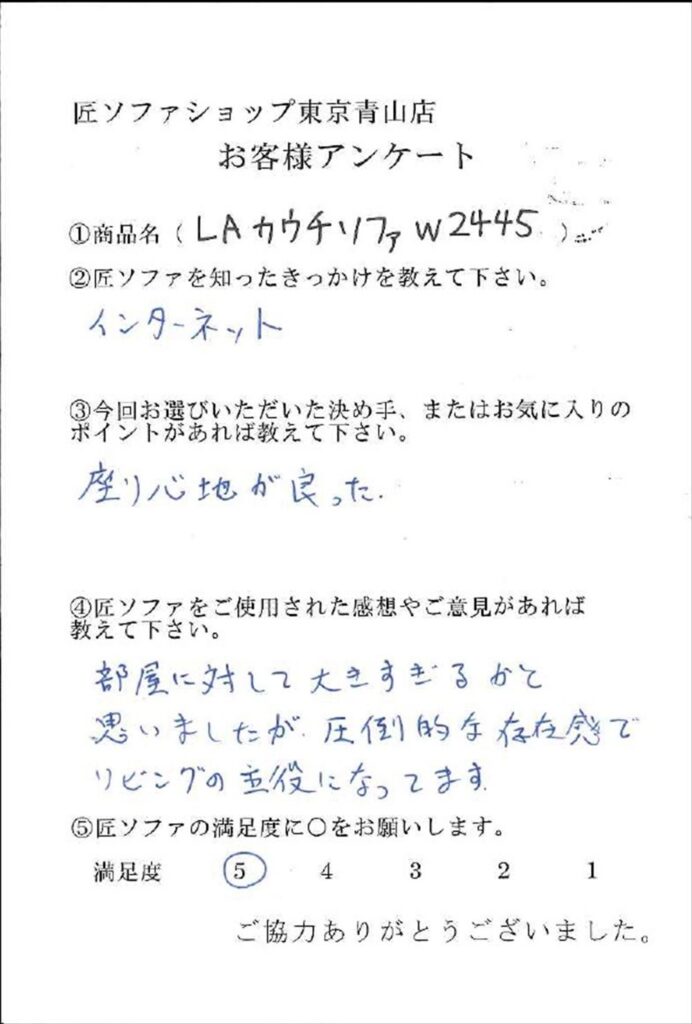 匠ソファショップ東京青山店
お客様アンケート
①商品名（LAカウチソファW2445）
②匠ソファを知ったきっかけを教えて下さい。
インターネット
③今回お選びいただいた決め手、またはお気に入りの
ポイントがあれば教えて下さい。
座り心地が良った.
④匠ソファをご使用された感想やご意見があれば
教えて下さい。
部屋に対して大きすぎるかと
思いましたが、圧倒的な存在感で
リビングの主役になってます
⑤匠ソファの満足度に○をお願いします。
満足度 5 4 3 2 1
ご協力ありがとうございました。